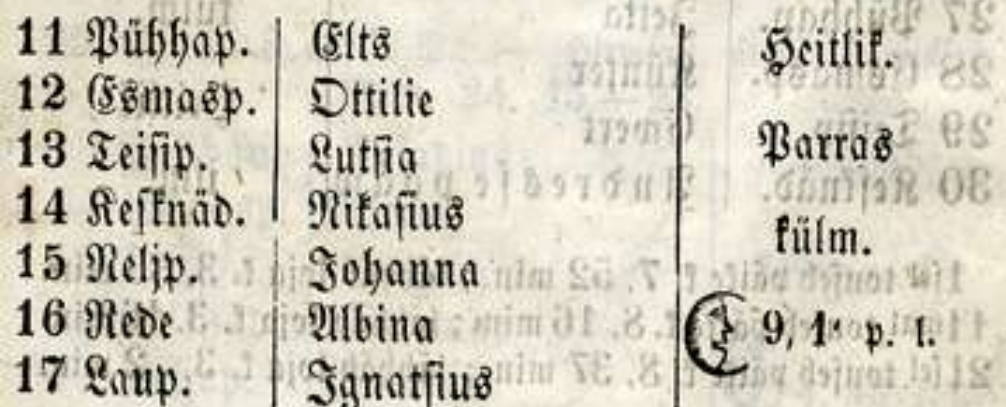 11 Pühhap. Elts Heitlik.
12 Esmasp. Ottilie
13 Teisip. Lutsia Parras
14 Kesknäd. Nikasius
15 Neljp. Johanna külm.
16 Rede Albina 9, 1 p. l.
17 Laup. Ignatsius